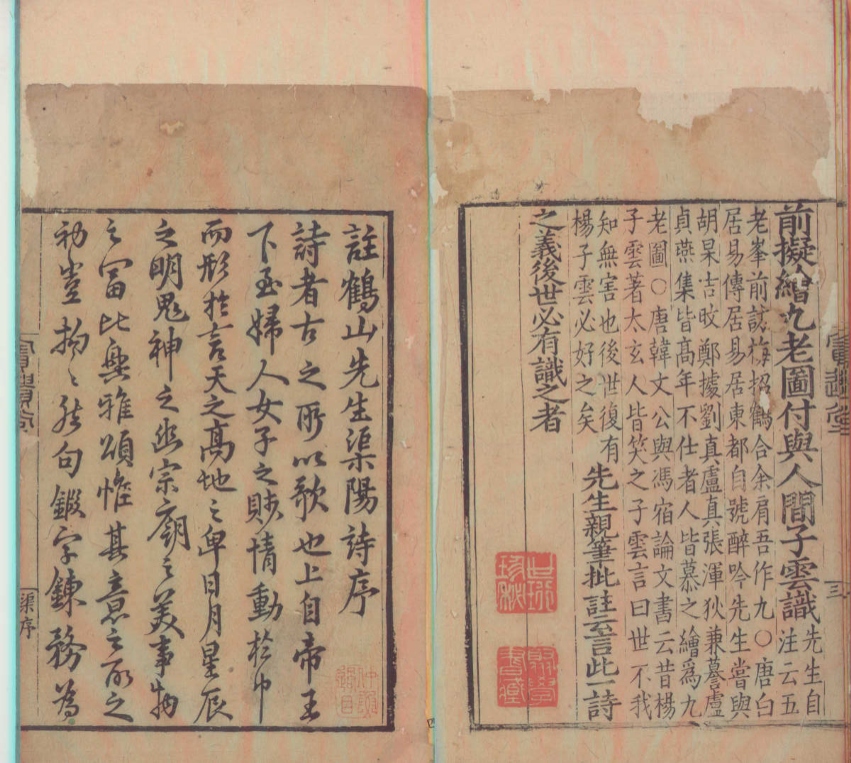 前擬繪九老圖付與人間子雲識先生自
注云五
老峯前訪梅招鶴合余肩吾作九○唐白
居易傳居易居東都自號醉吟先生嘗與
胡杲吉旼鄭據劉真盧真張渾狄兼謩盧
貞燕集皆高年不仕者人皆慕之繪爲九
老圖○唐韓文公與馮宿論文書云昔楊
子雲著太玄人皆笑之子雲言曰世不我
知無害也後世復有
楊子雲必好之矣
先生親筆批註云至言此一詩
之義後世必有識之者
三
註鶴山先生渠陽詩序
詩者古之所以歌也上自帝王
下至婦人女子之賤情動於中
而形於言天之高地之卑日月星辰
之明鬼神之幽宗廟之美事物
之富比興雅頌惟其意之所之
初豈拘〻然句鍛字鍊務為
渠序